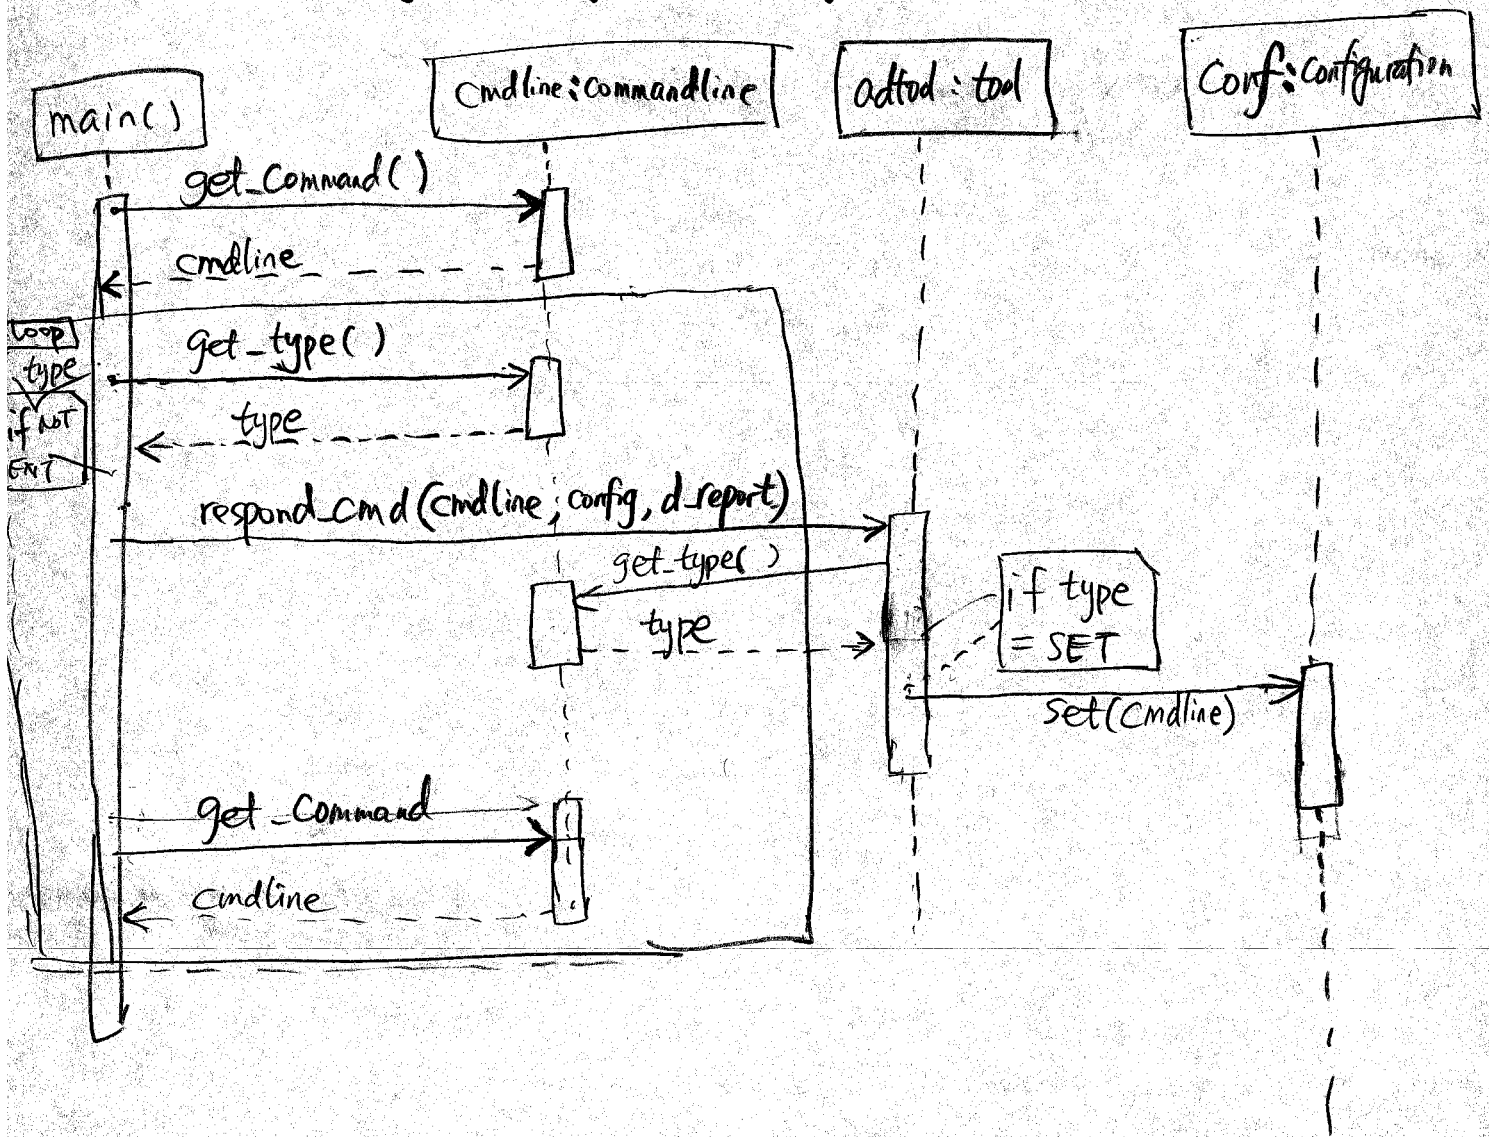 main()
cmdline:Commandline
adtod: tool
Conf:Configuration
get_Command()
cmdline
loop
type
if NOT
EXIT
get_type()
type
respond_cmd(cmdline, config, d_report)
get_type()
type
if type
= SET
set(Cmdline)
get_Command
cmdline